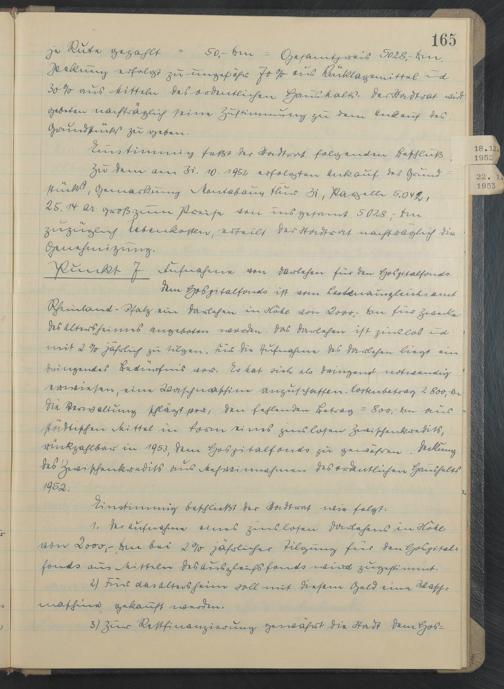 165
je Rute gezahlt = 50,- DM = Gesamtpreis 5028,- DM.
Deckung erfolgt zu ungefähr 70 % aus Rücklagemittel und
30 % aus Mitteln des ordentlichen Haushalts. Der Stadtrat wird
gebeten nachträglich seine Zustimmung zu dem Ankauf des
Grundstücks zu geben.
Einstimmig faßt der Stadtrat folgenden Beschluß
Zu dem am 31. 10. 1952 erfolgten Ankauf des Grund-
stücks, Gemarkung Flur 31, Parzelle
25,14 ar groß zum Preise von insgesamt 5028,- DM
zuzüglich Nebenkosten, erteilt der Stadtrat nachträglich die
Genehmigung.
Punkt 7 Aufnahme von Darlehen für den Hospitalfonds
Dem Hospitalfonds ist vom Lastenausgleichsamt
Rheinland-Pfalz ein Darlehen in Höhe von 2000,- DM für Zwecke
des Altersheimes angeboten worden. Das Darlehen ist zinslos und
mit 2 % jährlich zu tilgen. Für die Aufnahme des Darlehen liegt ein
dringendes Bedürfnis vor. Es hat sich als dringend notwendig
erwiesen, eine Waschmaschine anzuschaffen. Kostenbetrag 2800,- DM
Die Verwaltung schlägt vor, den fehlenden Betrag = 800,- DM aus
städtischen Mittel in Form eines zinslosen Zwischenkredits,
rückzahlbar in 1953, dem Hospitalfonds zu gewähren. Deckung
des Zwischenkredits aus Mehreinnahmen des ordentlichen Haushalts
1952.
Einstimmig beschließt der Stadtrat wie folgt:
1. Der Aufnahme eines zinslosen Darlehens in Höhe
von 2000,- DM bei 2 % jährlicher Tilgung für den Hospital-
fonds aus Mitteln des Ausgleichsfonds wird zugestimmt.
2) Für das Altersheim soll mit diesem Geld eine Wasch-
maschine gekauft werden.
3) Zur Restfinanzierung gewährt die Stadt dem Hos-
18.12.
1952
22. 1.
1953